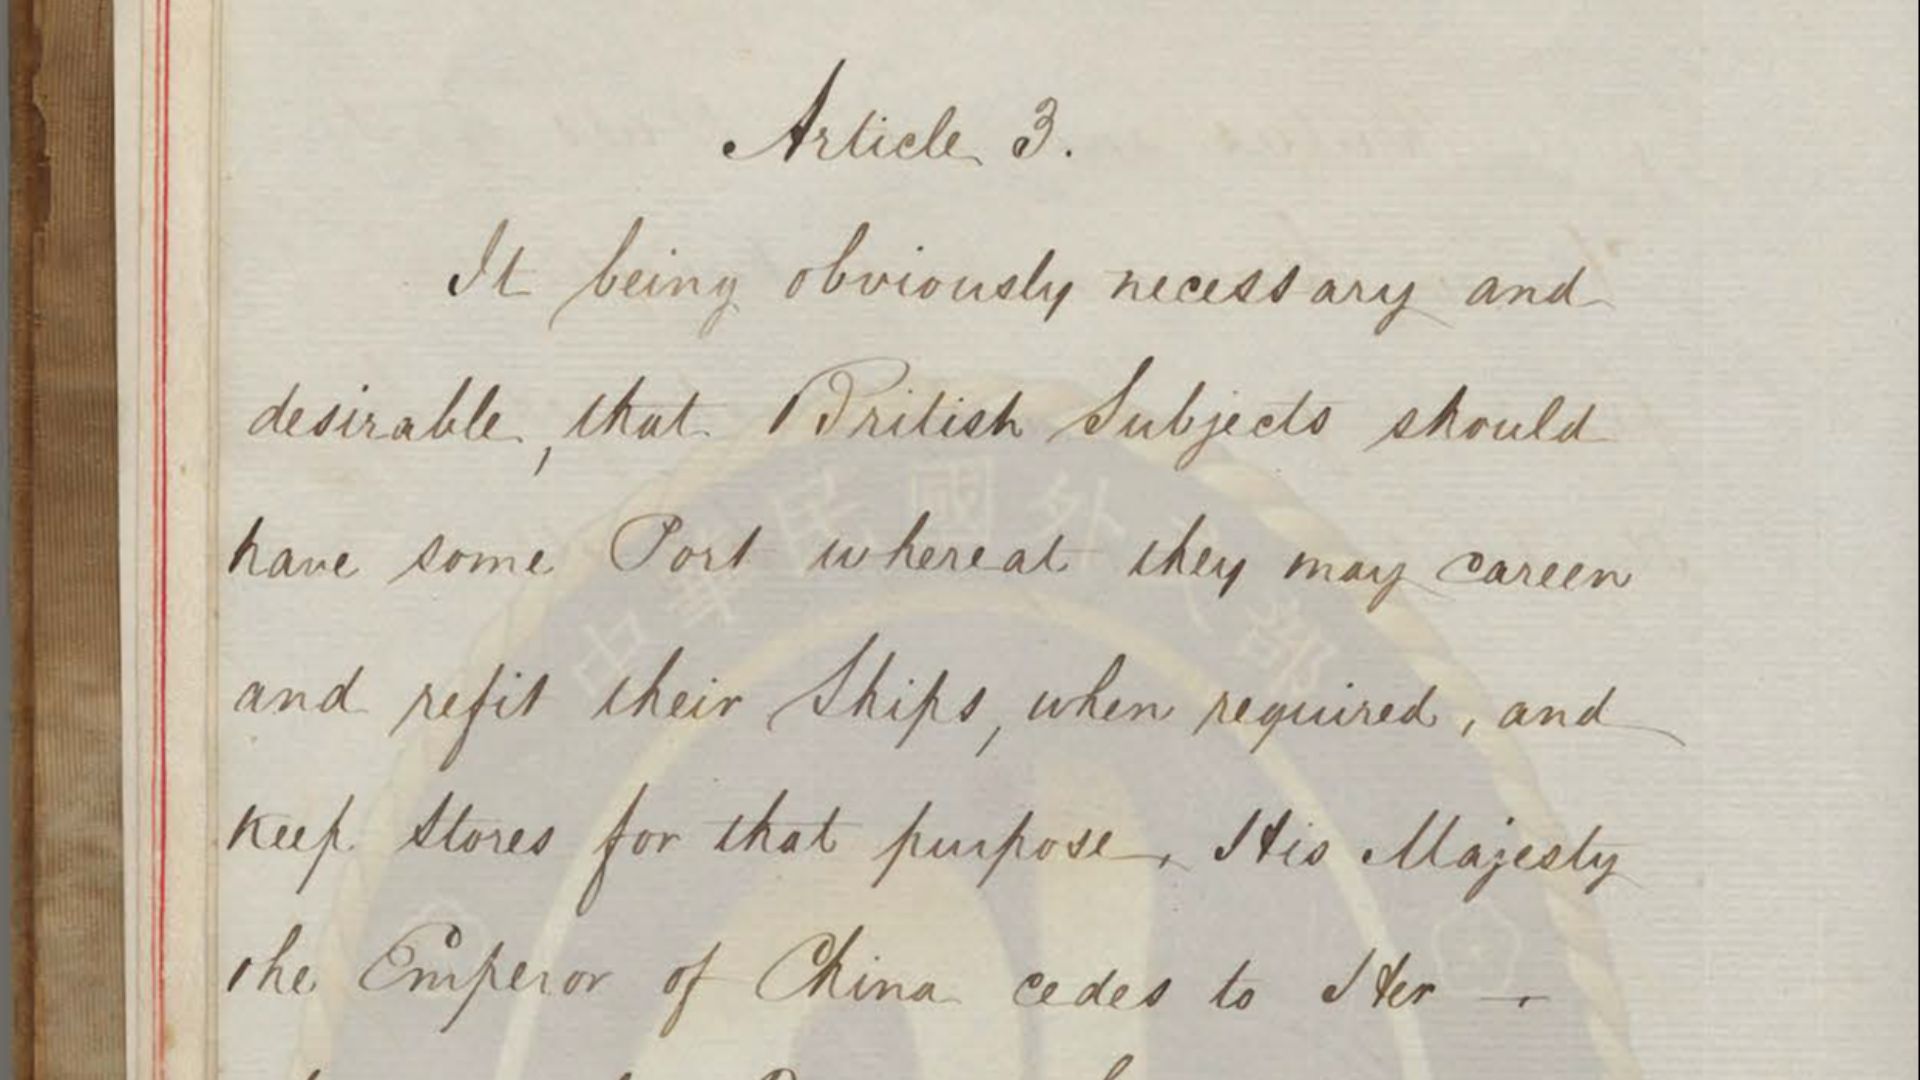 Article 3.
It being obviously necessary and
desirable, that British Subjects should
have some Port whereat they may careen
and refit their Ships, when required, and
keep Stores for that purpose, His Majesty
the Emperor of China cedes to Her
中華民國外交部